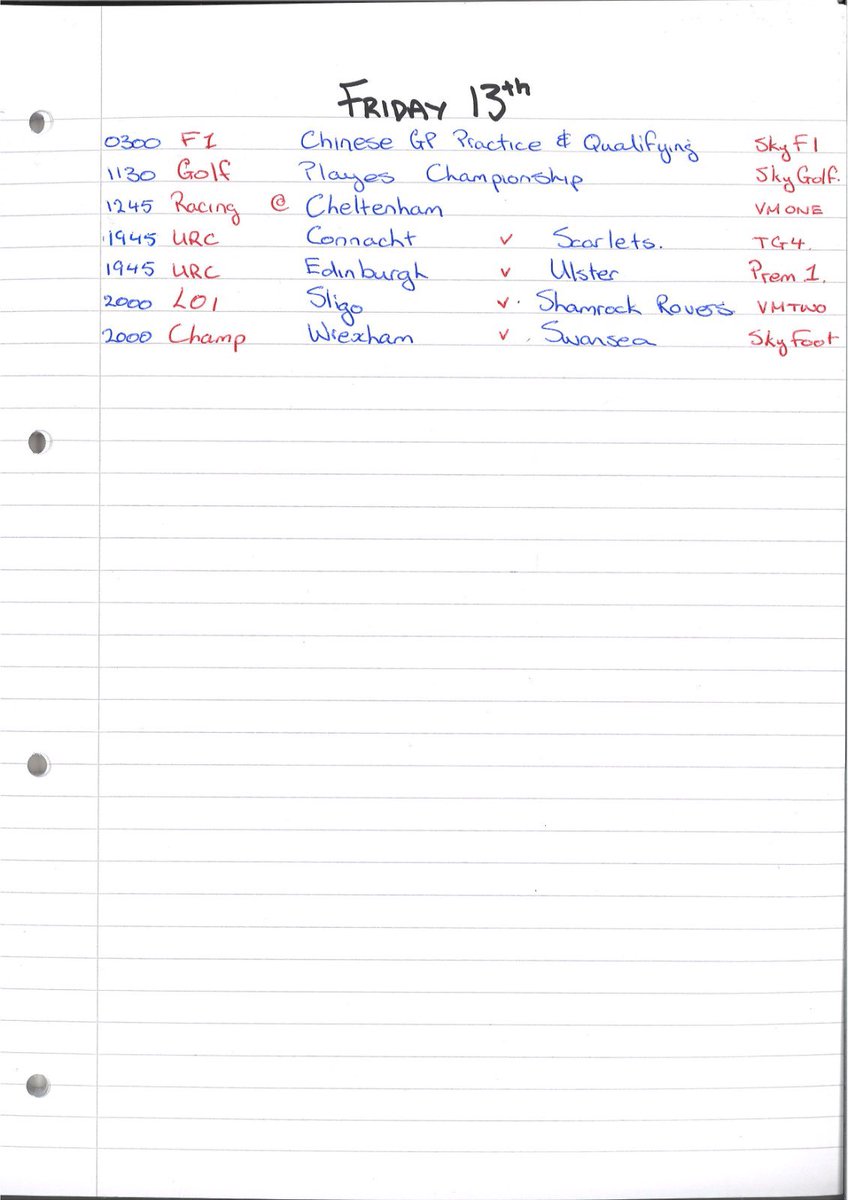 FRIDAY 13th
0300 F1 Chinese GP Practice & Qualifying Sky F1
1130 Golf Playes Championship Sky Golf.
1245 Racing @ Cheltenham VM ONE
1945 URC Connacht v Scarlets. TG4.
1945 URC Edinburgh v Ulster Prem 1.
2000 LOI Sligo v. Shamrock Rovers VMTWO
2000 Champ Wrexham v. Swansea Sky Foot